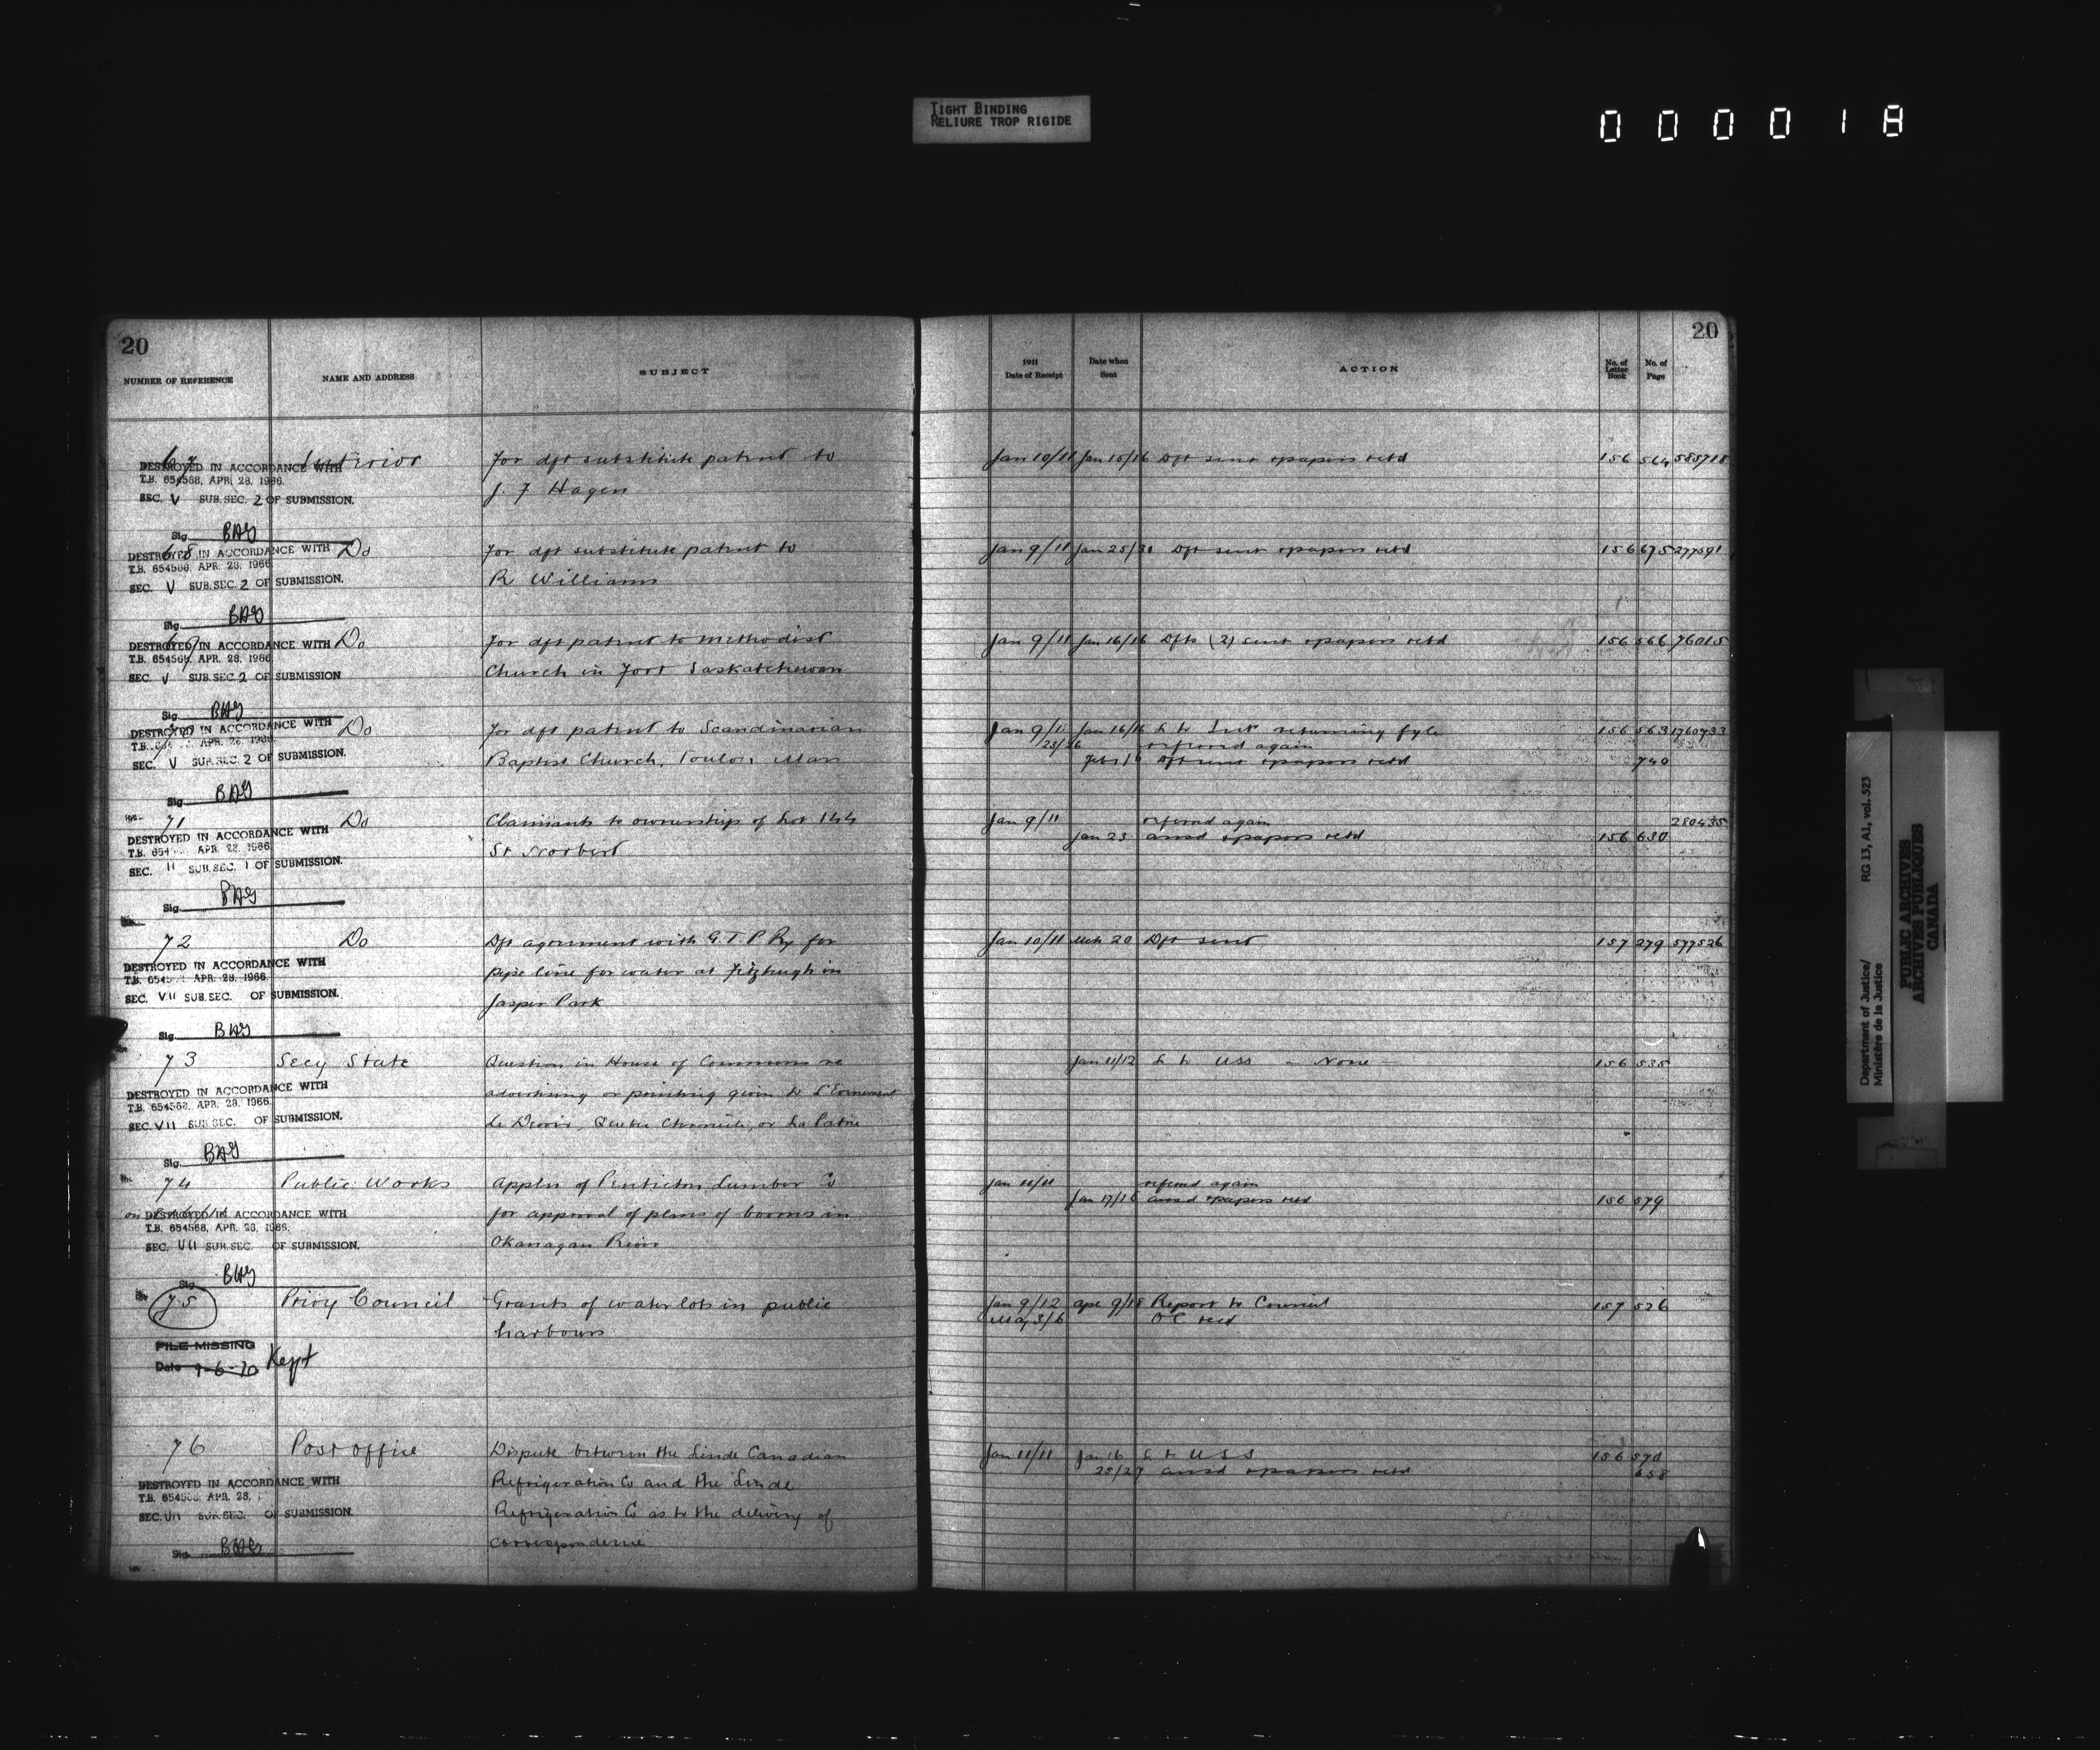 TIGHT BINDING
RELIURE TROP RIGIDE
000018
20
NUMBER OF REFERENCE NAME AND ADDRESS SUBJECT
67 Interior For dft substitute patent to
DESTROYED IN ACCORDANCE WITH
T.B. 654568, APR. 28, 1966.
SEC. V SUB. SEC. 2 OF SUBMISSION.
J. F Hagen
Sig. BAG
68 Do For dft substitute patent to
DESTROYED IN ACCORDANCE WITH
T.B. 654568, APR. 28, 1966
SEC. V SUB. SEC. 2 OF SUBMISSION.
R Williams
Sig. BAG
69 Do For dft patent to Methodist
DESTROYED IN ACCORDANCE WITH
T.B. 654568, APR. 28, 1966
SEC. V SUB. SEC. 2 OF SUBMISSION
Church in Fort Saskatchewan
Sig. BAG
70 Do For dft patent to Scandinavian
DESTROYED IN ACCORDANCE WITH
T.B. APR. 28, 1966.
SEC. V SUB. SEC. 2 OF SUBMISSION.
Baptist Church, Toulon, Man
Sig. BAG
71 Do Claimants to ownership of Lot 144
DESTROYED IN ACCORDANCE WITH
T.B. 654 APR. 28, 1966
SEC. II SUB. SEC. I OF SUBMISSION.
St Norbert
Sig. BAG
72 Do Dft agreement with G.T.P Ry for
DESTROYED IN ACCORDANCE WITH
T.B. 654 APR. 28, 1966
SEC. VII SUB. SEC. OF SUBMISSION.
pipe line for water at Fitzhugh in
Jasper Park
Sig. BAG
73 Secy State Question in House of Commons re
DESTROYED IN ACCORDANCE WITH
T.B. 654568, APR. 28, 1966
SEC. VII SUB. SEC. OF SUBMISSION.
advertising or printing given to L'Evenement
Le Devoir, Quebec Chronicle, or La Patrie
Sig. BAG
74 Public Works Appln of Penticton Lumber Co
DESTROYED IN ACCORDANCE WITH
T.B. 654568, APR. 28, 1966.
SEC. VII SUB. SEC. OF SUBMISSION.
for approval of plans of booms in
Okanagan River
Sig. BAG
75 Privy Council Grants of water lots in public
harbours
FILE MISSING
Date 9-6-70 Kept
76 Post office Dispute between the Linde Canadian
DESTROYED IN ACCORDANCE WITH
T.B. 654568 APR. 28,
SEC. VII SUB. SEC. OF SUBMISSION.
Refrigeration Co and the Linde
Refrigeration Co as to the delivery of
correspondence
Sig. BAG
20
1911
Date of Receipt Date when Sent ACTION No. of Letter Book No. of Page
Jan 10/11 Jan 15/16 Dft sent & papers retd 156 564 585718
Jan 9/11 Jan 25/30 Dft sent & papers retd 156 675 277591
Jan 9/11 Jan 16/16 Dfts (2) sent & papers retd 156 566 76015
Jan 9/11 Jan 16/16 L to Intr returning fyle 156 563 1760733
23/26 referred again
Feb 1 Dft sent & papers retd 740
Jan 9/11 referred again 280435
Jan 23 ansd & papers retd 156 630
Jan 10/11 Mch 20 Dft sent 157 279 577526
Jan 11/12 L to USS - None - 156 535
Jan 11/11 referred again
Jan 17/18 ansd & papers retd 156 579
Jan 9/12 Apr 9/18 Report to Council 157 526
May 3/6 OC recd
Jan 11/11 Jan 16 L to U S S 156 570
25/27 ansd & papers retd 658
Department of Justice/
Ministère de la Justice
RG 13, A1, vol. 523
PUBLIC ARCHIVES
ARCHIVES PUBLIQUES
CANADA